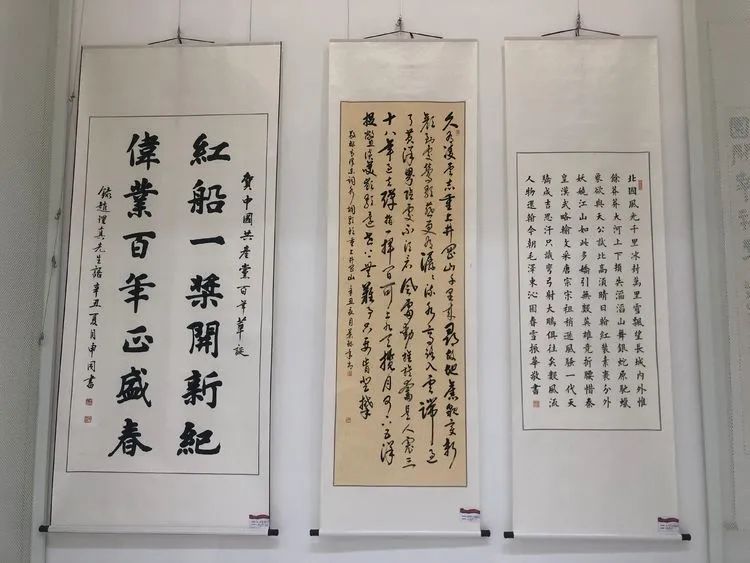 賀中國共產黨百年華誕
紅船一槳開新紀
偉業百年正盛春
錄趙理真先生語辛丑夏月申同書
久有凌雲志重上井岡山千里來尋故地舊貌變新
顏到處鶯歌燕舞更有潺潺流水高路入雲端過
了黃洋界險處不須看風雷動旌旗奮是人寰三
十八年過去彈指一揮間可上九天攬月可下五洋
捉鱉談笑凱歌還世上無難事只要肯登攀
敬錄毛澤東詞水調歌頭重上井岡山辛丑
北國風光千里冰封萬里雪飄望長城內外惟
餘莽莽大河上下頓失滔滔山舞銀蛇原馳蠟
象欲與天公試比高須晴日看紅裝素裹分外
妖嬈江山如此多嬌引無數英雄競折腰惜秦
皇漢武略輸文采唐宗宋祖稍遜風騷一代天
驕成吉思汗只識彎弓射大鵰俱往矣數風流
人物還看今朝毛澤東沁園春雪振華敬書